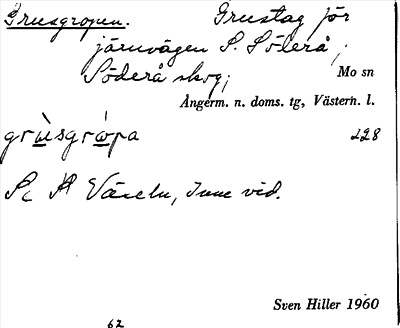 Grusgropen. Grustag för
järnvägen S. Söderå,
Söderå skog; Mo sn
Ångerm. n. doms. tg, Västern. l.
grùsgròpa 228
Sven Hiller 1960
62